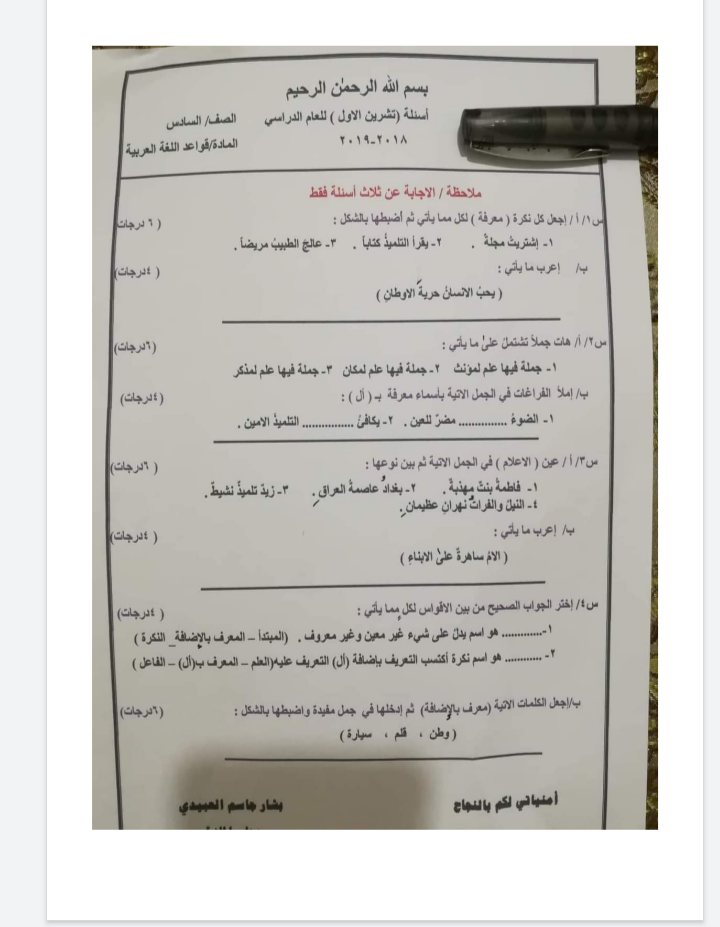 بسم الله الرحمن الرحيم
أسئلة (تشرين الاول ) للعام الدراسي
٢٠١٨-٢٠١٩
الصف/ السادس
المادة/قواعد اللغة العربية
ملاحظة / الاجابة عن ثلاث أسئلة فقط
س١/ أ/ إجعل كل نكرة ( معرفة ) لكل مما يأتي ثم أضبطها بالشكل : ( ٦ درجات)
١- إشتريتُ مجلةً . ٢- يقرأ التلميذُ كتاباً . ٣- عالجَ الطبيبُ مريضاً .
ب/ إعرب ما يأتي : ( ٤درجات)
( يحبُ الانسانُ حريةَ الاوطانِ )
س٢/ أ/ هات جملاً تشتملُ على ما يأتي : (٦درجات)
١- جملة فيها علم لمؤنث ٢- جملة فيها علم لمكان ٣- جملة فيها علم لمذكر
ب/ إملأ الفراغات في الجمل الاتية بأسماء معرفة بـ ( أل ) : (٤درجات)
١- الضوءُ ............... مضرٌ للعين . ٢- يكافئُ ................ التلميذُ الامين .
س٣/ أ / عين ( الاعلام ) في الجمل الاتية ثم بين نوعها : ( ٦درجات)
١- فاطمةُ بنتٌ مهذبةٌ . ٢- بغدادُ عاصمةُ العراقِ . ٣- زيدٌ تلميذٌ نشيطٌ .
٤- النيلُ والفراتُ نهرانِ عظيمانِ .
ب/ إعرب ما يأتي : ( ٤درجات)
( الامُ ساهرةٌ على الابناءِ )
س٤/ إختر الجواب الصحيح من بين الاقواس لكل مما يأتي : ( ٤درجات)
١-............. هو اسم يدلُ على شيء غير معين وغير معروف . (المبتدأ – المعرف بالإضافة_ النكرة )
٢- ........... هو اسم نكرة أكتسب التعريف بإضافة (أل) التعريف عليه(العلم – المعرف ب(أل) – الفاعل )
ب/إجعل الكلمات الاتية (معرف بالإضافة) ثم إدخلها في جمل مفيدة واضبطها بالشكل : (٦درجات)
( وطن ، قلم ، سيارة )
أمنياتي لكم بالنجاح
بشار جاسم العبيدي